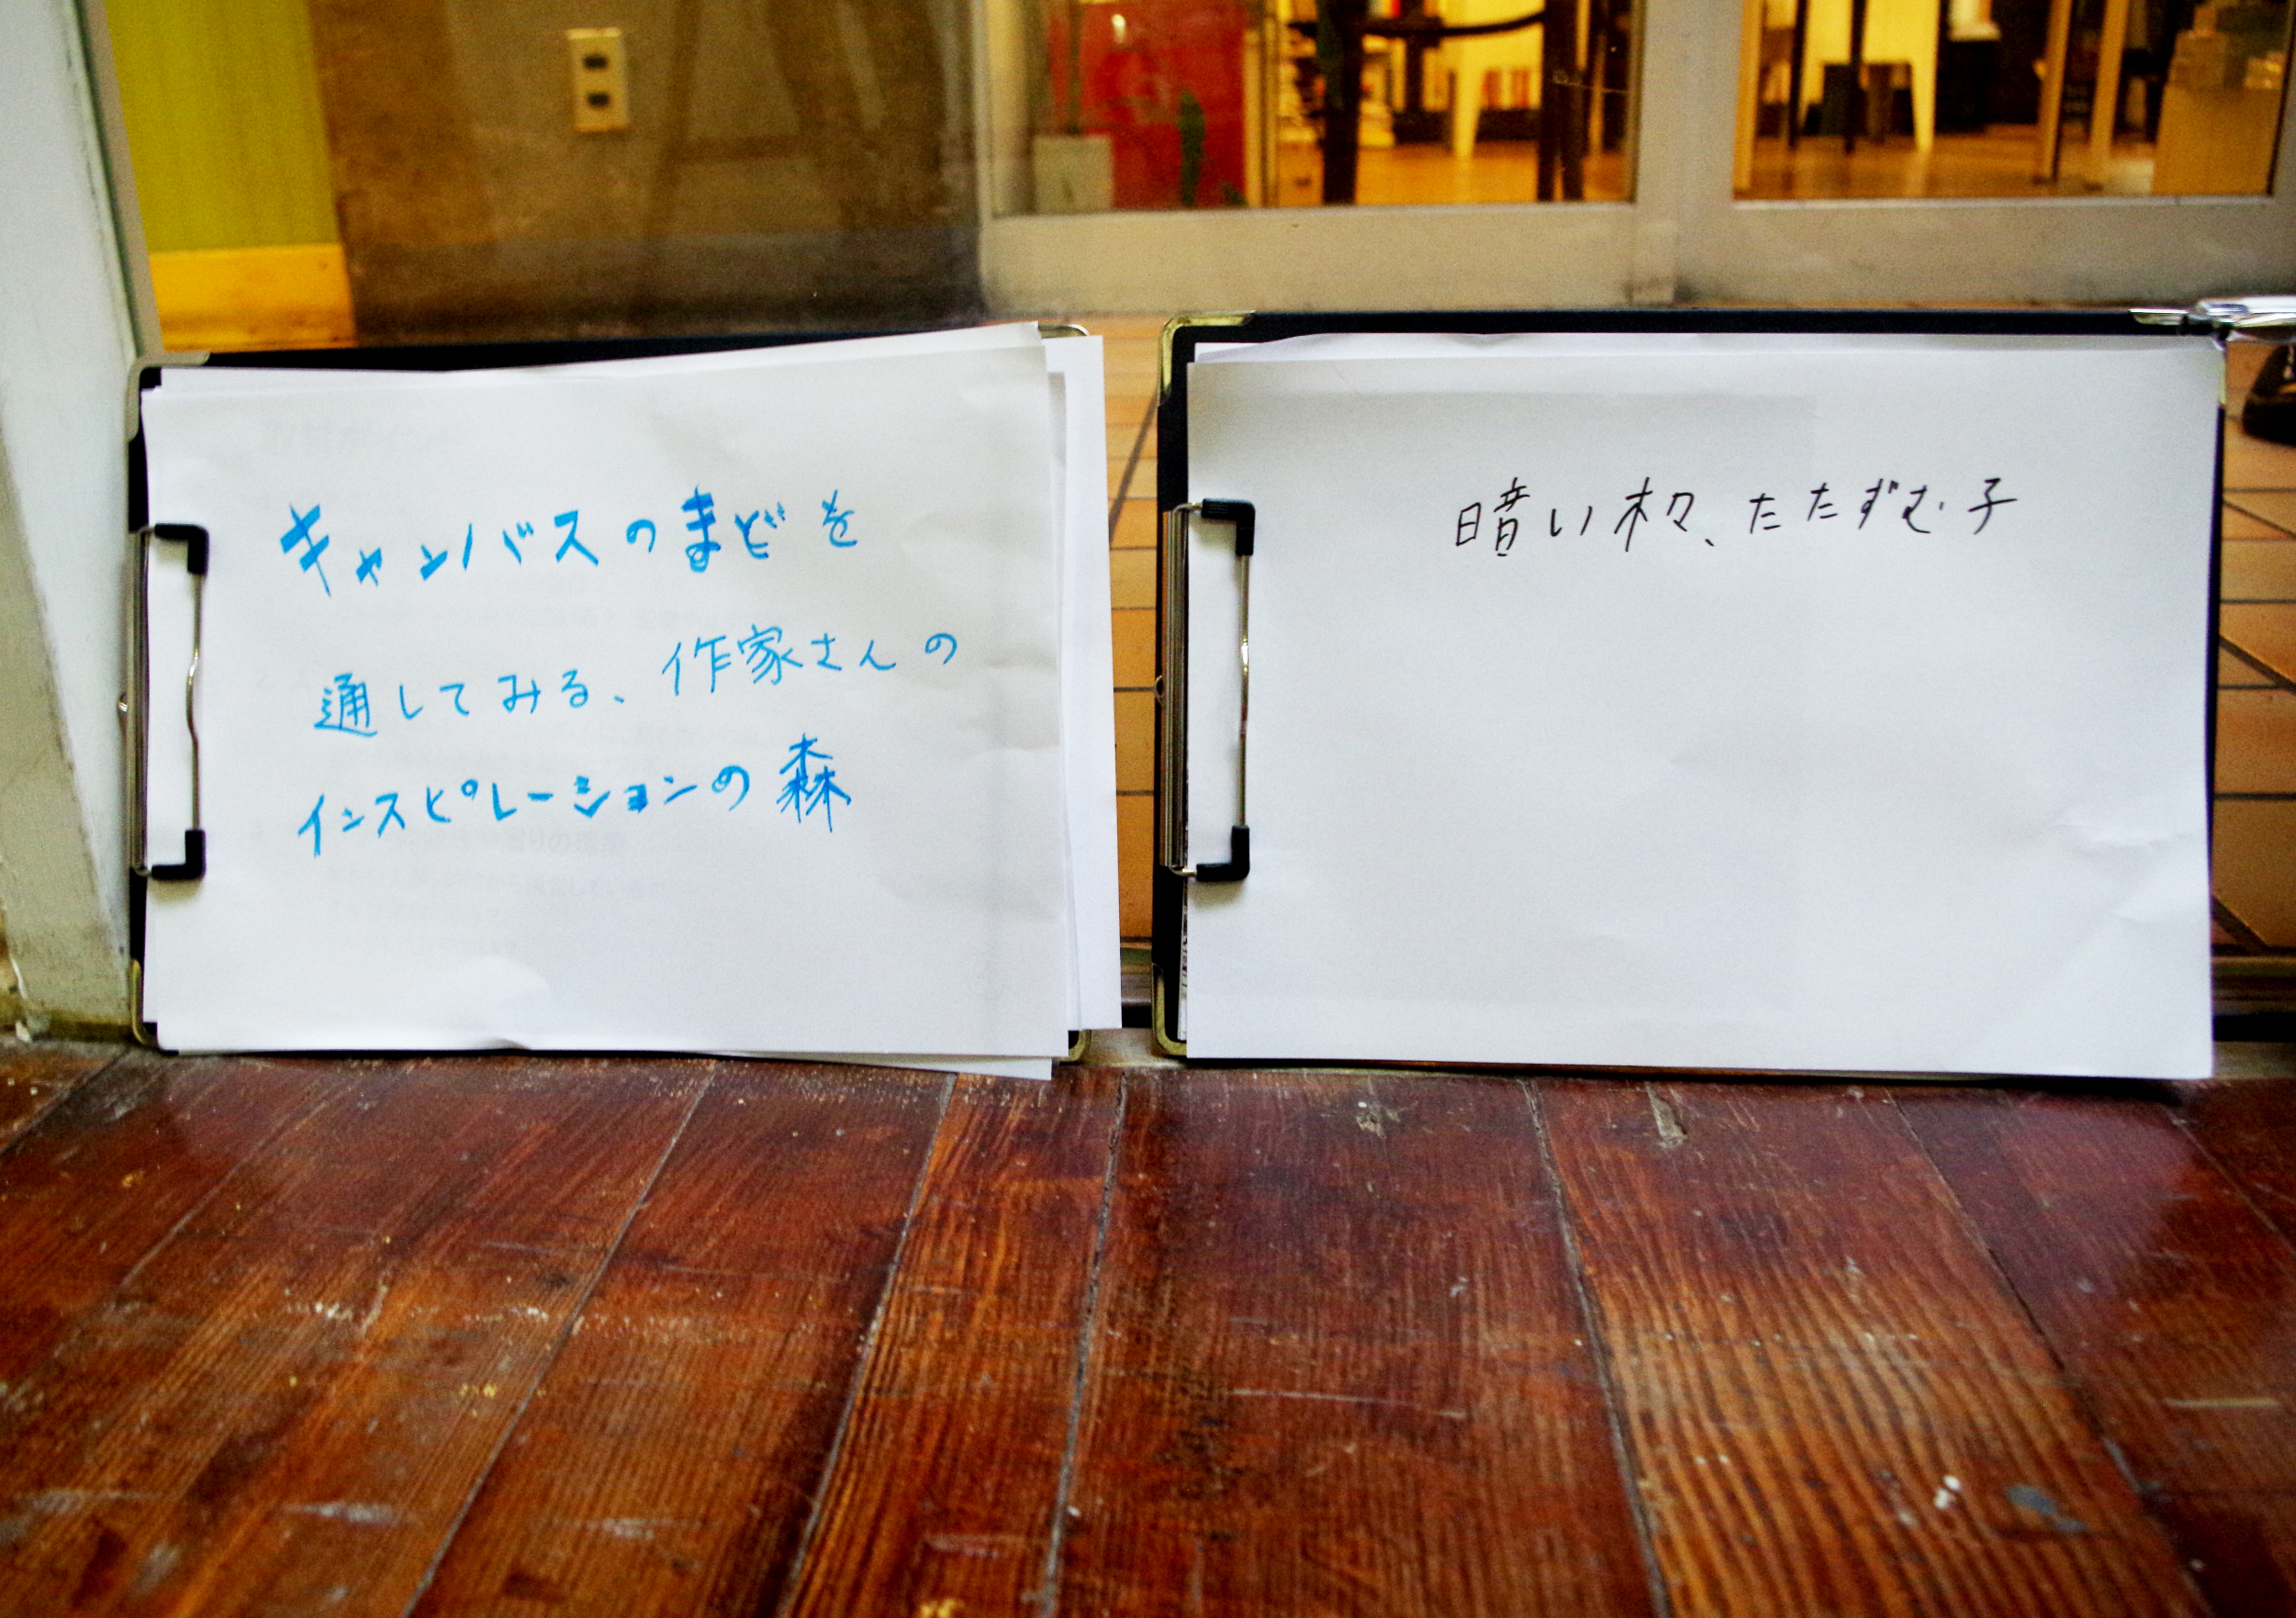 キャンバスのまどを
通してみる、作家さんの
インスピレーションの森
暗い木々、たたずむ子